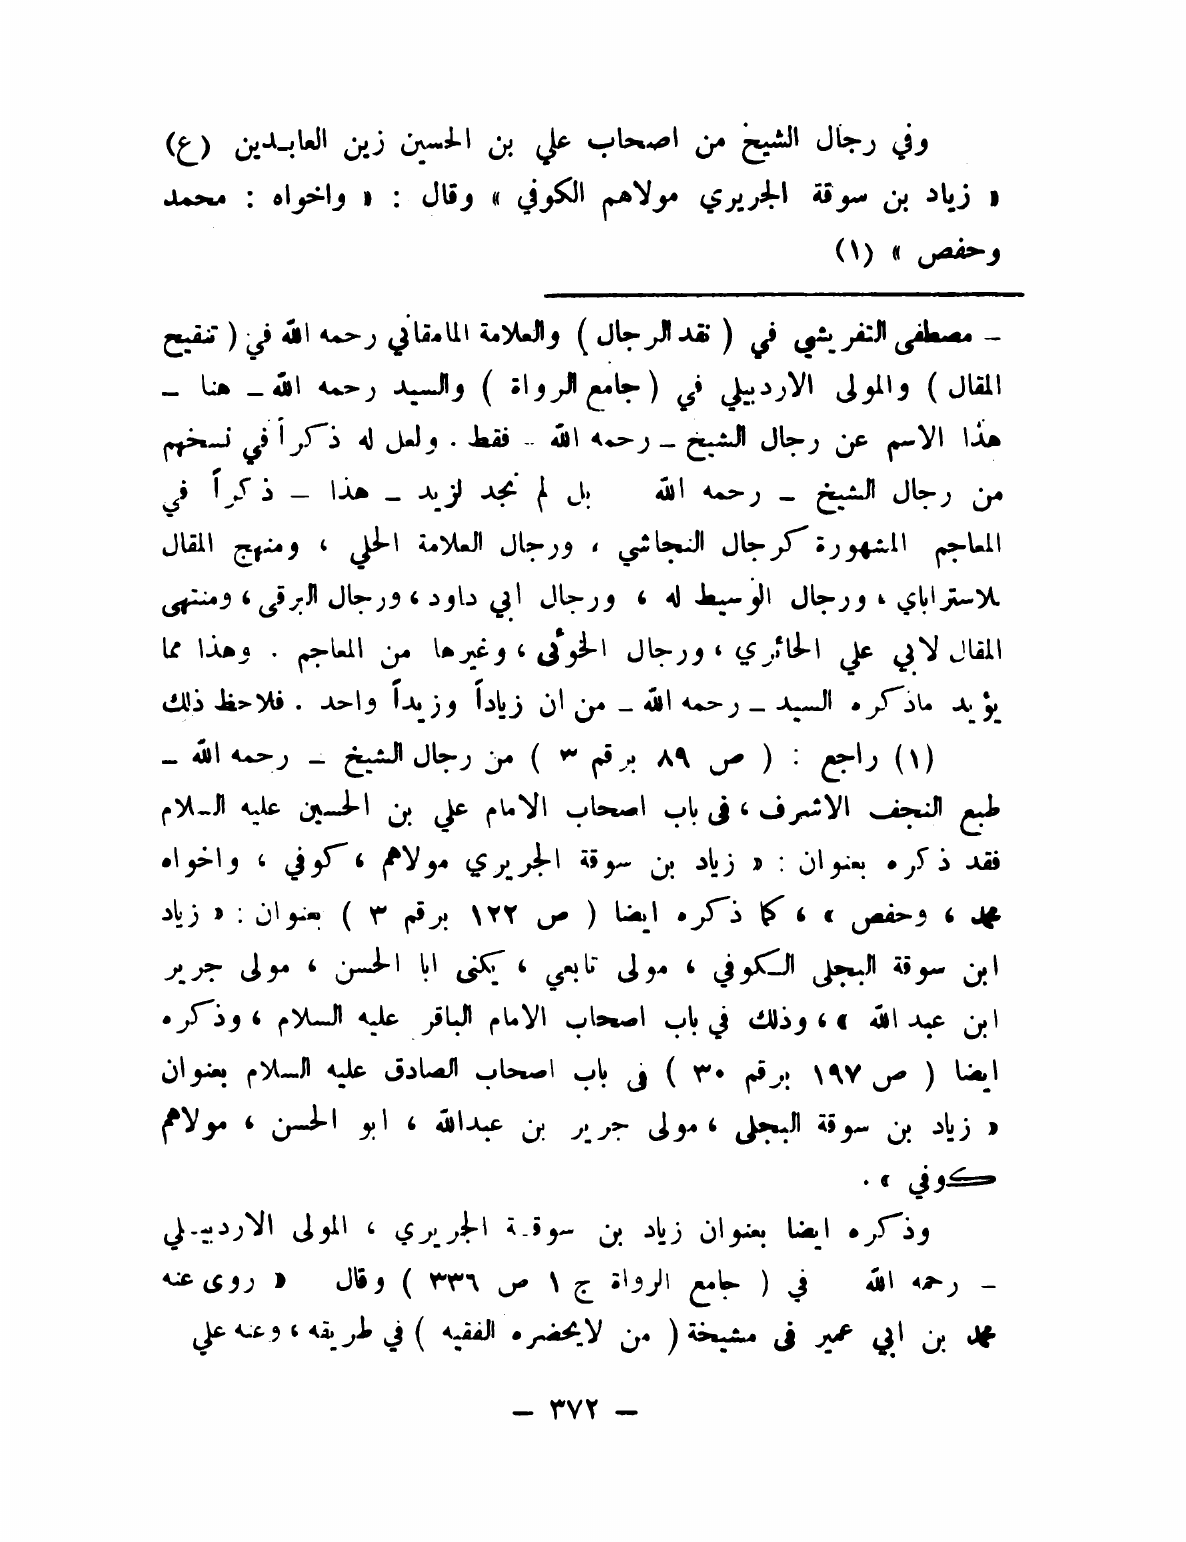 وفي رجال الشيخ من اصحاب علي بن الحسين زين العابـدين (ع)
« زياد بن سوقة الجريري مولاهم الكوفي » وقال : « واخواه : محمد
وحفص » (١)
ـ مصطفى التفريشي في ( نقد الرجال ) والعلامة المامقاني رحمه الله في ( تنقيح
المقال ) والمولى الاردبيلي في ( جامع الرواة ) والسيد رحمه الله ـ هنا ـ
هذا الاسم عن رجال الشيخ ـ رحمه الله ـ فقط . ولعل له ذكراً في نسخهم
من رجال الشيخ ـ رحمه الله بل لم نجد لزيد ـ هذا ـ ذكراً في
المعاجم المشهورة كرجال النجاشي ، ورجال العلامة الحلي ، ومنهج المقال
للاستراباي ، ورجال الوسيط له ، ورجال ابي داود ، ورجال البرقى ، ومنتهى
المقال لابي علي الحائري ، ورجال الخوئى ، وغيرها من المعاجم . وهذا مما
يؤيد ماذكره السيد ـ رحمه الله ـ من ان زياداً وزيداً واحد . فلاحظ ذلك
(١) راجع : ( ص ٨٩ برقم ٣ ) من رجال الشيخ ـ رحمه الله ـ
طبع النجف الاشرف ، فى باب اصحاب الامام علي بن الحسين عليه السلام
فقد ذكره بعنوان : « زياد بن سوقة الجريري مولاهم ، كوفي ، واخواه
محمد ، وحفص » ، كما ذكره ايضا ( ص ١٢٢ برقم ٣ ) بعنوان : « زياد
ابن سوقة البجلى الكوفي ، مولى تابعي ، يكنى ابا الحسن ، مولى جرير
ابن عبد الله » ، وذلك في باب اصحاب الامام الباقر عليه السلام ، وذكره
ايضا ( ص ١٩٧ برقم ٣٠ ) فى باب اصحاب الصادق عليه السلام بعنوان
« زياد بن سوقة البجلى ، مولى جرير بن عبدالله ، ابو الحسن ، مولاهم
كوفي » .
وذكره ايضا بعنوان زياد بن سوقـة الجريري ، المولى الاردبيـلي
ـ رحمه الله في ( جامع الرواة ج ١ ص ٣٣٦ ) وقال « روى عنه
محمد بن ابي عمير فى مشيخة ( من لايحضره الفقيه ) في طريقه ، وعنه علي
ـ ٣٧٢ ـ